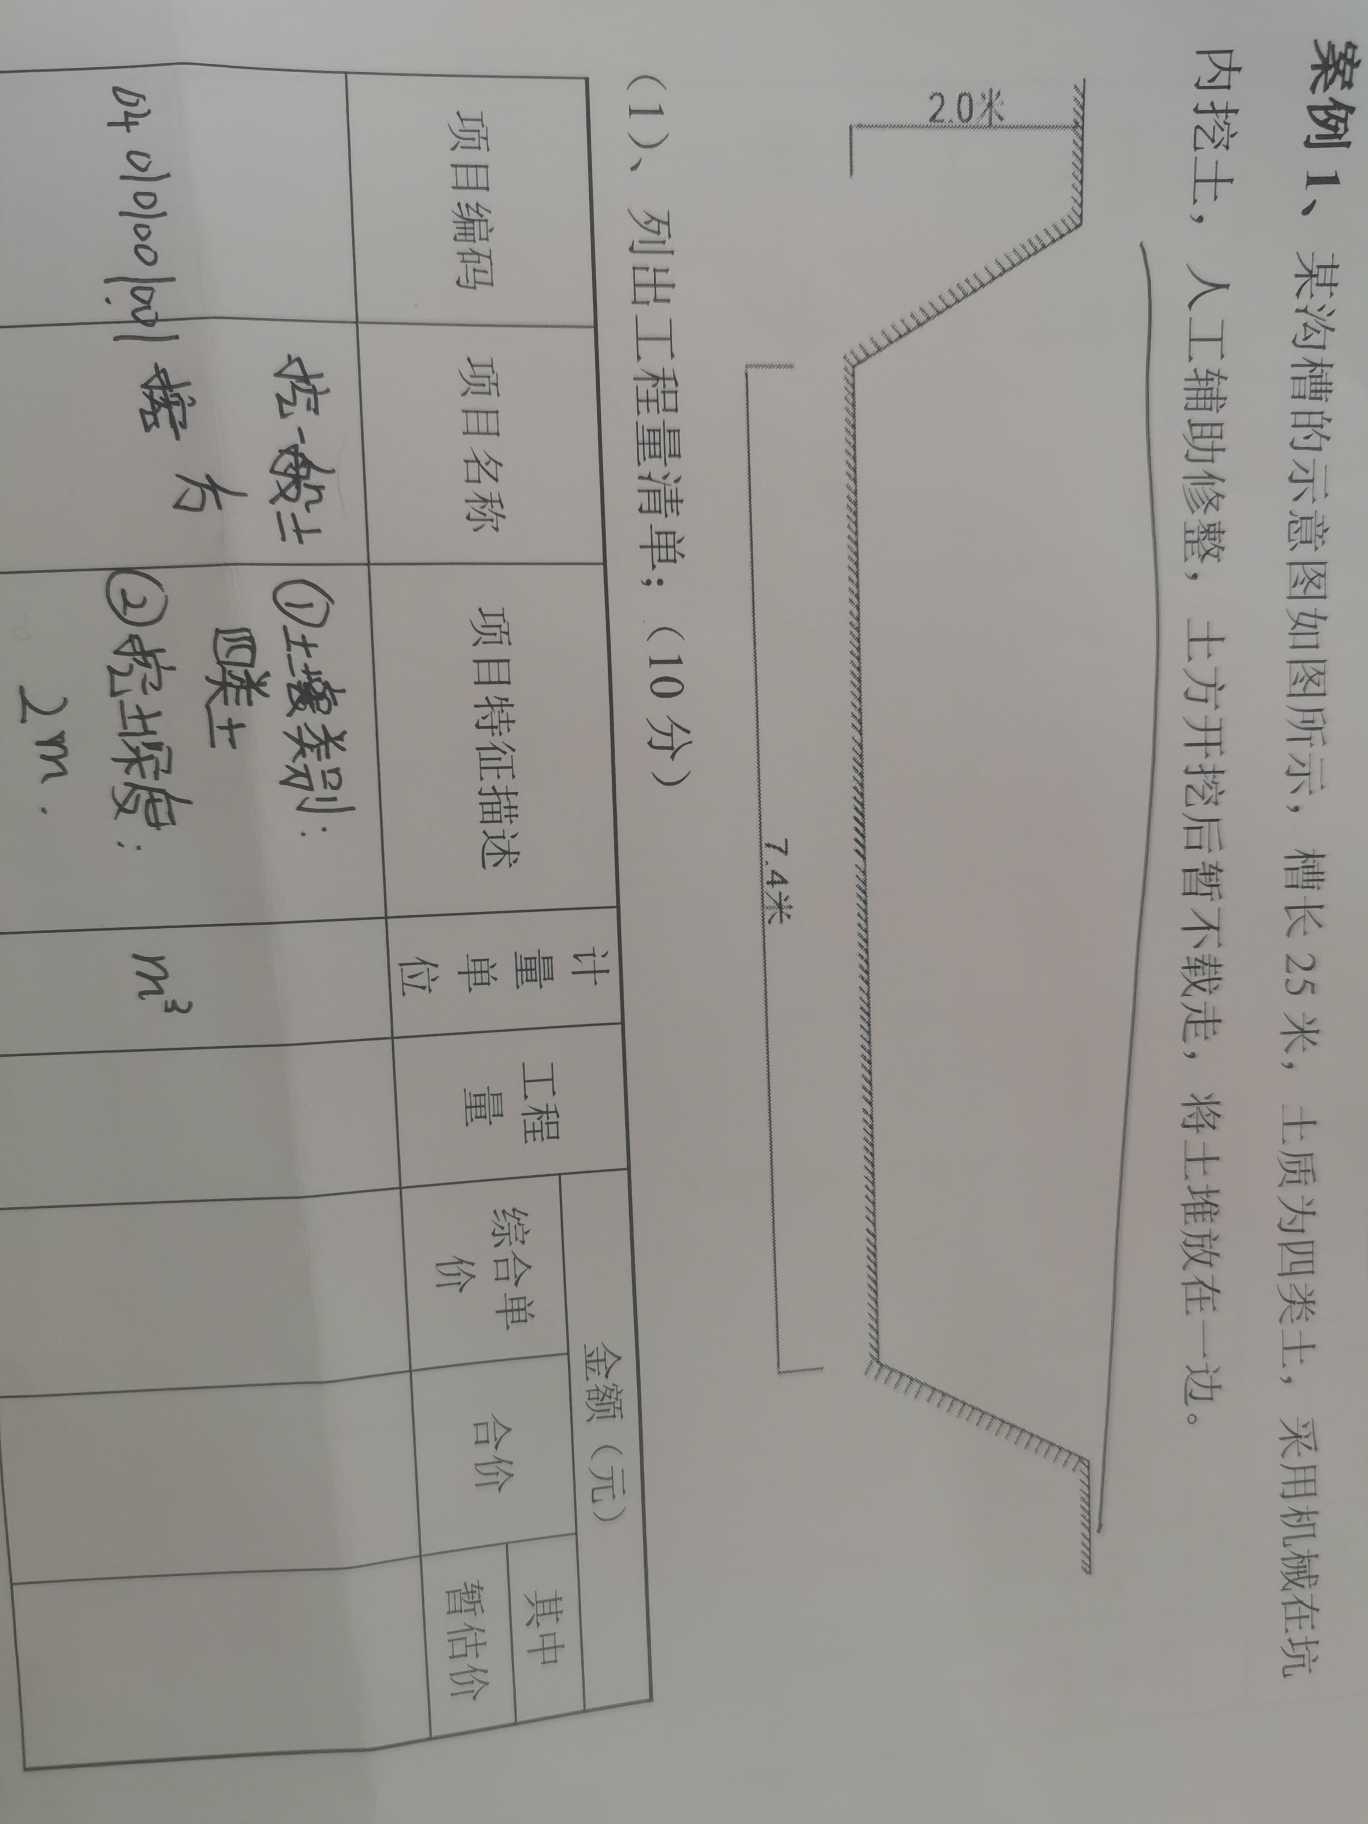 案例 1、某沟槽的示意图如图所示，槽长 25 米，土质为四类土，采用机械在坑
内挖土，人工辅助修整，土方开挖后暂不载走，将土堆放在一边。
2.0米
7.4米
（1）、列出工程量清单；（10 分）
项目编码
项目名称
项目特征描述
计量单位
工程量
金额（元）
综合单价
合价
其中
暂估价
040101001001
挖一般土
方
①土壤类别：
四类土
②挖土深度：
2m.
m³